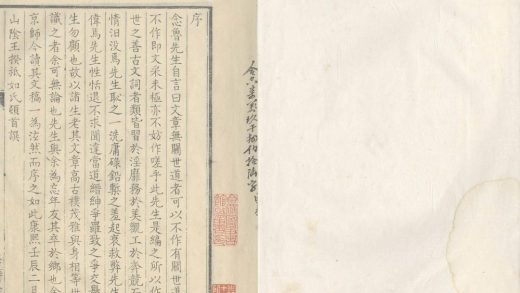 序
念魯先生自言曰文章無關世道者可以不作有關世道
不作即文采未極亦不妨作嗟乎此先生是編之所以作
世之善古文詞者類皆習於淫靡務於美觀工於奔競
情汨没焉先生恥之一洗庸碌鉛槧之羞起衰救弊先生
偉焉先生性恬退不求聞達當道縉紳爭羅致之爭交
生勿顧也故以諸生老其文章高古樸茂雅與身相等世
識之者余可無論也先生與余為忘年友其卒於鄉也余
京師今讀其文稿一為泫然而序之如此康熙壬辰二月
山陰王揆祇如氏頓首譔